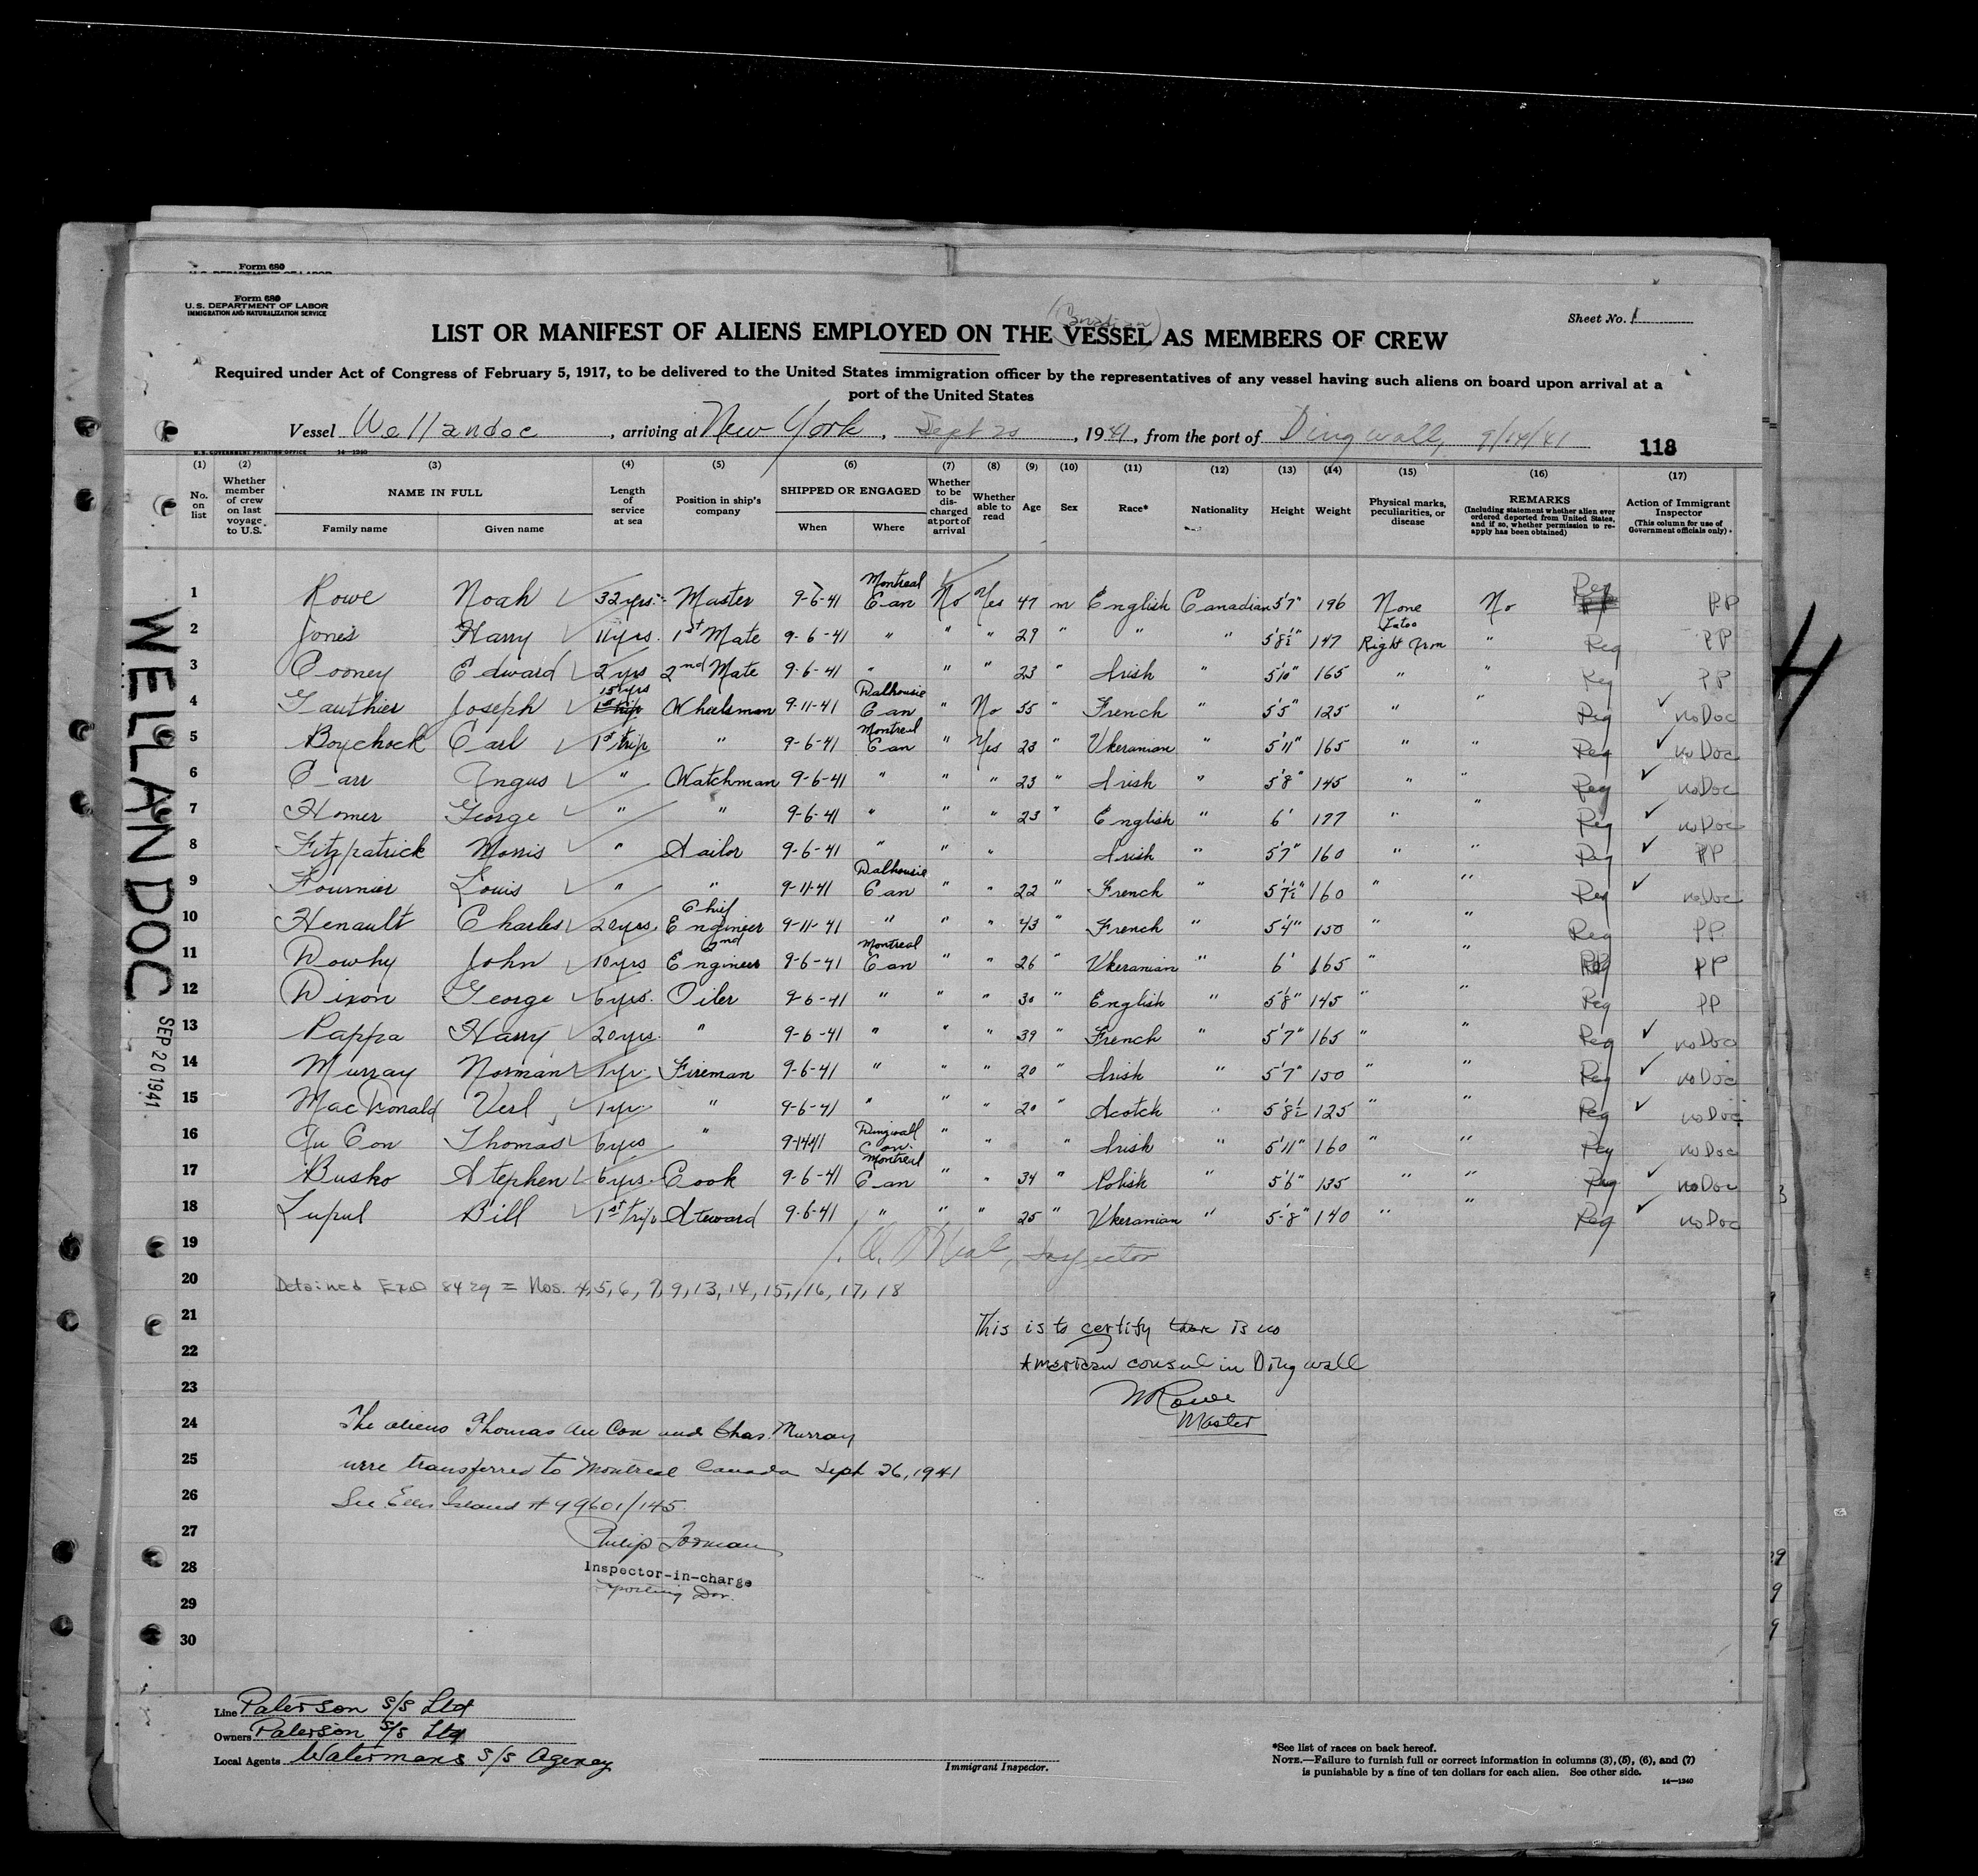 Form 680
Form 680
U.S. DEPARTMENT OF LABOR
IMMIGRATION AND NATURALIZATION SERVICE
Sheet No. 1
(Canadian)
LIST OR MANIFEST OF ALIENS EMPLOYED ON THE VESSEL AS MEMBERS OF CREW
Required under Act of Congress of February 5, 1917, to be delivered to the United States immigration officer by the representatives of any vessel having such aliens on board upon arrival at a
port of the United States
Vessel Wellandoc, arriving at New York, Sept 20, 1941, from the port of Dingwall, 9/14/41
118
U.S. GOVERNMENT PRINTING OFFICE 14—1240
(1) (2) (3) (4) (5) (6) (7) (8) (9) (10) (11) (12) (13) (14) (15) (16) (17)
No. on list
Whether member of crew on last voyage to U.S.
NAME IN FULL
Family name
Given name
Length of service at sea
Position in ship's company
SHIPPED OR ENGAGED
When
Where
Whether to be discharged at port of arrival
Whether able to read
Age
Sex
Race*
Nationality
Height
Weight
Physical marks, peculiarities, or disease
REMARKS
(Including statement whether alien ever ordered deported from United States, and if so, whether permission to reapply has been obtained)
Action of Immigrant Inspector
(This column for use of Government officials only)
1 Rowe Noah 32 yrs. Master 9-6-41 Montreal Can No Yes 47 m English Canadian 5'7" 196 None No Reg PP
2 Jones Harry 11 yrs. 1st Mate 9-6-41 " " " 29 " " " 5'8½" 147 Tatoo Right Arm " Reg PP
3 Cooney Edward 2 yrs 2nd Mate 9-6-41 " " " 23 Irish " 5'10" 165 " " Reg PP
4 Gauthier Joseph 15 yrs 1st trip Wheelsman 9-11-41 Dalhousie Can " No 55 " French " 5'5" 125 " " Reg no Doc
5 Boychock Carl 1st trip " 9-6-41 Montreal Can " Yes 23 " Ukeranian " 5'11" 165 " " Reg no Doc
6 Carr Angus " Watchman 9-6-41 " " " 23 " Irish " 5'8" 145 " " Reg no Doc
7 Homer George " " 9-6-41 " " " 23 " English " 6' 177 " " Reg no Doc
8 Fitzpatrick Morris " Sailor 9-6-41 " " " Irish " 5'7" 160 " " Reg PP
9 Fournier Louis " " 9-11-41 Dalhousie Can " " 22 " French " 5'7½" 160 " " Reg no Doc
10 Henault Charles 20 yrs. Chief Engineer 9-11-41 " " " 43 " French " 5'4" 150 " " Reg PP
11 Dowhy John 10 yrs 2nd Engineer 9-6-41 Montreal Can " " 26 " Ukeranian " 6' 165 " " Reg PP
12 Dixon George 6 yrs. Oiler 9-6-41 " " " 30 " English " 5'8" 145 " " Reg PP
13 Pappa Harry 20 yrs. " 9-6-41 " " " 39 " French " 5'7" 165 " " Reg no Doc
14 Murray Norman 1 yr. Fireman 9-6-41 " " " 20 " Irish " 5'7" 150 " " Reg no Doc
15 MacDonald Verl 1 yr. " 9-6-41 " " " 20 " Scotch " 5'8½ 125 " " Reg no Doc
16 Au Con Thomas 6 yrs " 9-14-41 Dingwall Can. " " " Irish " 5'11" 160 " " Reg no Doc
17 Busko Stephen 6 yrs. Cook 9-6-41 Montreal Can " " 34 " Polish " 5'6" 135 " " Reg no Doc
18 Lupul Bill 1st trip Steward 9-6-41 " " " 25 " Ukeranian " 5-8" 140 " " Reg no Doc
19 Inspector
20 Detained 8429 = Nos. 4, 5, 6, 7, 9, 13, 14, 15, 16, 17, 18
21 This is to certify there is no
22 American consul in Dingwall
23 N Rowe
Master
24 The aliens Thomas Au Con and Chas. Murray
25 were transferred to Montreal Canada Sept 26, 1941
26 See Ellis Island # 99601/145
27 Philip Forman
28 Inspector-in-charge
29
30
WELLANDOC
SEP 20 1941
Line Paterson S/S Ltd
Owners Paterson S/S Ltd
Local Agents Watermans S/S Agency
Immigrant Inspector.
*See list of races on back hereof.
NOTE.—Failure to furnish full or correct information in columns (3), (5), (6), and (7)
is punishable by a fine of ten dollars for each alien. See other side.
14—1240